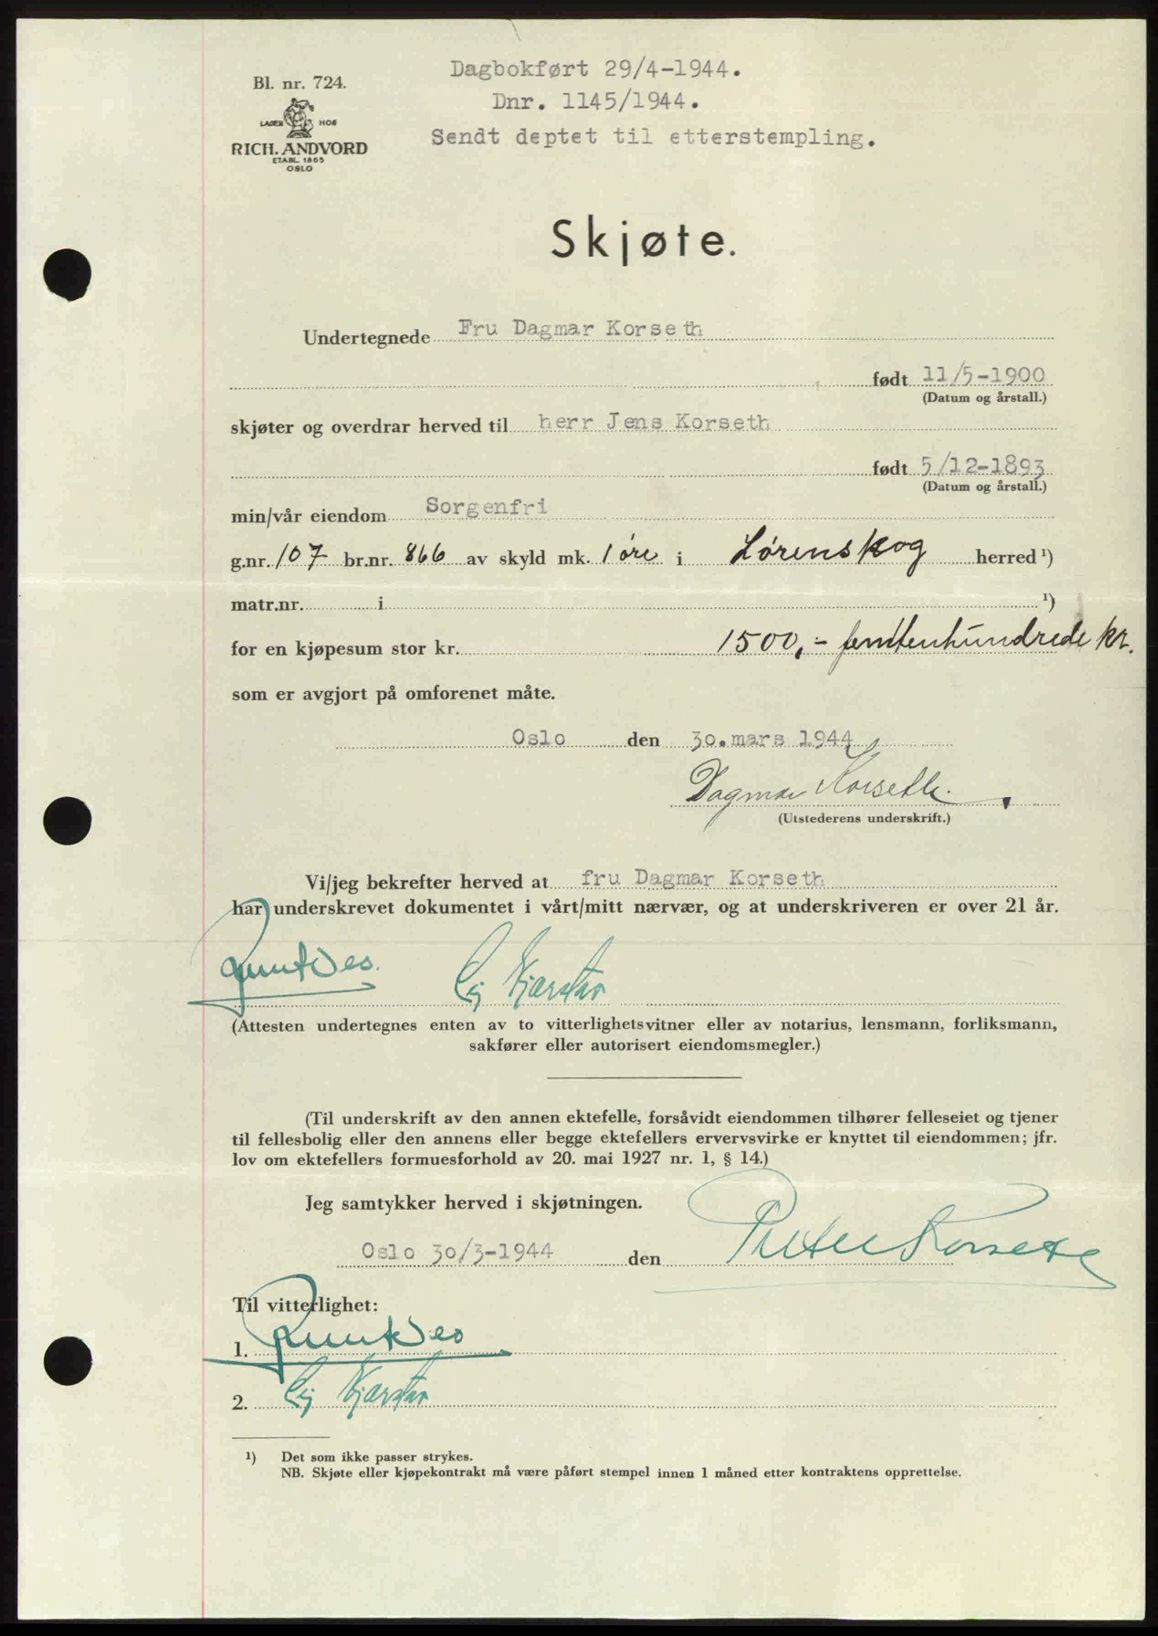 Dagbokført 29/4-1944.
Bl. nr. 724.
Dnr. 1145/1944.
LAGER HOS
Sendt deptet til etterstempling.
RICH. ANDVORD
ETABL. 1865
OSLO
Skjøte.
Undertegnede Fru Dagmar Korseth
født 11/5-1900
(Datum og årstall.)
skjøter og overdrar herved til herr Jens Korseth
født 5/12-1893
(Datum og årstall.)
min/vår eiendom Sorgenfri
g.nr. 107 br.nr. 866 av skyld mk. 1 øre i Lørenskog herred ¹)
matr.nr. i ¹)
for en kjøpesum stor kr. 1500,- femtenhundrede kr.
som er avgjort på omforenet måte.
Oslo den 30.mars 1944
Dagmar Korseth.
(Utstederens underskrift.)
Vi/jeg bekrefter herved at fru Dagmar Korseth
har underskrevet dokumentet i vårt/mitt nærvær, og at underskriveren er over 21 år.
(Attesten undertegnes enten av to vitterlighetsvitner eller av notarius, lensmann, forliksmann,
sakfører eller autorisert eiendomsmegler.)
(Til underskrift av den annen ektefelle, forsåvidt eiendommen tilhører felleseiet og tjener
til fellesbolig eller den annens eller begge ektefellers ervervsvirke er knyttet til eiendommen; jfr.
lov om ektefellers formuesforhold av 20. mai 1927 nr. 1, § 14.)
Jeg samtykker herved i skjøtningen.
Oslo 30/3-1944 den Korseth
Til vitterlighet:
1.
2.
¹) Det som ikke passer strykes.
NB. Skjøte eller kjøpekontrakt må være påført stempel innen 1 måned etter kontraktens opprettelse.